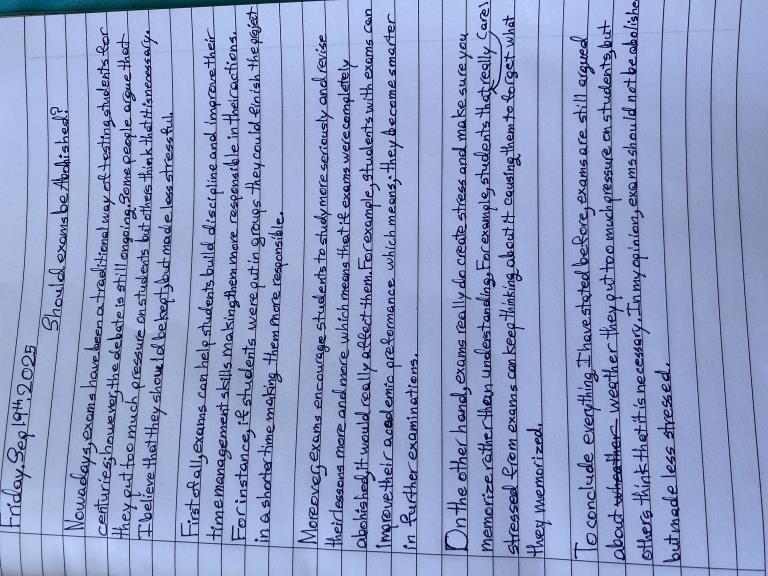 Friday, Sep 19th, 2025
Should exams be Abolished?
Nowadays, exams have been a traditional way of testing students for
centuries, however, the debate is still ongoing. Some people argue that
they put too much pressure on students but others think that it is necessary.
I believe that they should be kept, but made less stressful.
First of all, exams can help students build discipline and improve their
time management skills making them more responsible in their actions.
For instance, if students were put in groups they could finish the project
in a shorter time making them more responsible.
Moreover, exams encourage students to study more seriously and revise
their lessons more and more which means that if exams were completely
abolished, it would really affect them. For example, students with exams can
improve their academic preformance which means, they become smarter
in further examinations.
On the other hand, exams really do create stress and make sure you
memorize rather than understanding. For example, students that really (are)
stressed from exams can keep thinking about it causing them to forget what
they memorized.
To conclude everything I have stated before, exams are still argued
about wheather weather they put too much pressure on students, but
others think that it is necessary. In my opinion, exams should not be abolishe
but made less stressed.